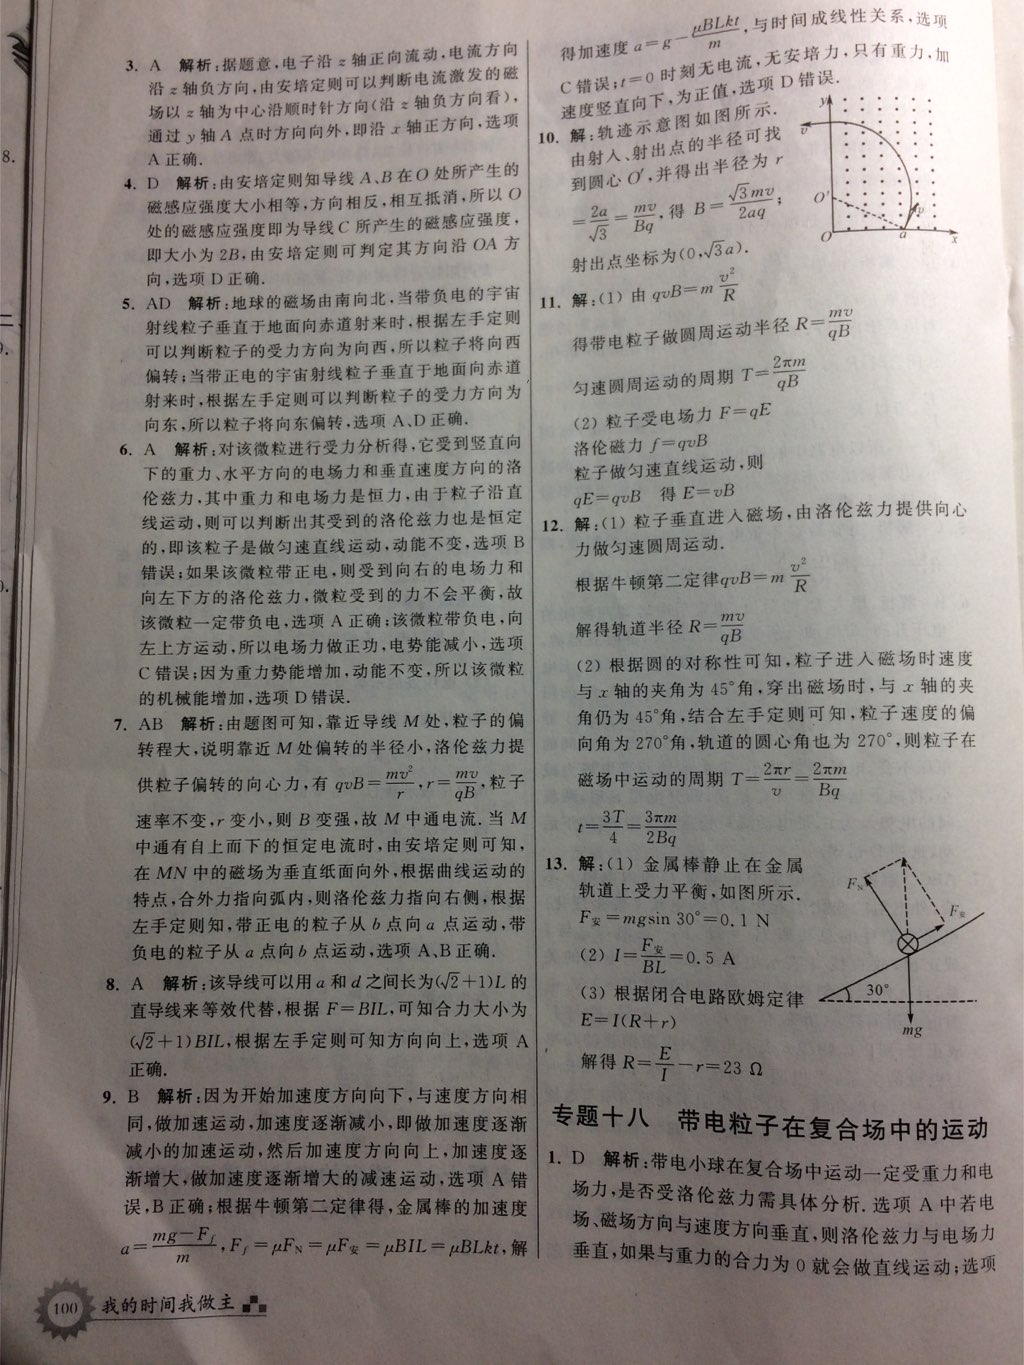 3. A 解析:据题意,电子沿 z 轴正向流动,电流方向
沿 z 轴负方向,由安培定则可以判断电流激发的磁
场以 z 轴为中心沿顺时针方向(沿 z 轴负方向看),
通过 y 轴 A 点时方向向外,即沿 x 轴正方向,选项
A 正确.
4. D 解析:由安培定则知导线 A、B 在 O 处所产生的
磁感应强度大小相等,方向相反,相互抵消,所以 O
处的磁感应强度即为导线 C 所产生的磁感应强度,
即大小为 2B,由安培定则可判定其方向沿 OA 方
向,选项 D 正确.
5. AD 解析:地球的磁场由南向北,当带负电的宇宙
射线粒子垂直于地面向赤道射来时,根据左手定则
可以判断粒子的受力方向为向西,所以粒子将向西
偏转;当带正电的宇宙射线粒子垂直于地面向赤道
射来时,根据左手定则可以判断粒子的受力方向为
向东,所以粒子将向东偏转,选项 A、D 正确.
6. A 解析:对该微粒进行受力分析得,它受到竖直向
下的重力、水平方向的电场力和垂直速度方向的洛
伦兹力,其中重力和电场力是恒力,由于粒子沿直
线运动,则可以判断出其受到的洛伦兹力也是恒定
的,即该粒子是做匀速直线运动,动能不变,选项 B
错误;如果该微粒带正电,则受到向右的电场力和
向左下方的洛伦兹力,微粒受到的力不会平衡,故
该微粒一定带负电,选项 A 正确;该微粒带负电,向
左上方运动,所以电场力做正功,电势能减小,选项
C 错误;因为重力势能增加,动能不变,所以该微粒
的机械能增加,选项 D 错误.
7. AB 解析:由题图可知,靠近导线 M 处,粒子的偏
转程大,说明靠近 M 处偏转的半径小,洛伦兹力提
供粒子偏转的向心力,有 qvB=mv²/r,r=mv/qB,粒子
速率不变,r 变小,则 B 变强,故 M 中通电流.当 M
中通有自上而下的恒定电流时,由安培定则可知,
在 MN 中的磁场为垂直纸面向外,根据曲线运动的
特点,合外力指向弧内,则洛伦兹力指向右侧,根据
左手定则知,带正电的粒子从 b 点向 a 点运动,带
负电的粒子从 a 点向 b 点运动,选项 A、B 正确.
8. A 解析:该导线可以用 a 和 d 之间长为(√2+1)L 的
直导线来等效代替,根据 F=BIL,可知合力大小为
(√2+1)BIL,根据左手定则可知方向向上,选项 A
正确.
9. B 解析:因为开始加速度方向向下,与速度方向相
同,做加速运动,加速度逐渐减小,即做加速度逐渐
减小的加速运动,然后加速度方向向上,加速度逐
渐增大,做加速度逐渐增大的减速运动,选项 A 错
误,B 正确;根据牛顿第二定律得,金属棒的加速度
a=(mg-Ff)/m,Ff=μFN=μF安=μBIL=μBLkt,解
得加速度 a=g-μBLkt/m,与时间成线性关系,选项
C 错误;t=0 时刻无电流,无安培力,只有重力,加
速度竖直向下,为正值,选项 D 错误.
10. 解:轨迹示意图如图所示.
由射入、射出点的半径可找
到圆心 O′,并得出半径为 r
=2a/√3=mv/Bq,得 B=√3mv/2aq;
射出点坐标为(0,√3a).
y
v
O′
v
O
a
x
11. 解:(1) 由 qvB=m v²/R
得带电粒子做圆周运动半径 R=mv/qB
匀速圆周运动的周期 T=2πm/qB
(2) 粒子受电场力 F=qE
洛伦磁力 f=qvB
粒子做匀速直线运动,则
qE=qvB 得 E=vB
12. 解:(1) 粒子垂直进入磁场,由洛伦兹力提供向心
力做匀速圆周运动.
根据牛顿第二定律qvB=m v²/R
解得轨道半径 R=mv/qB
(2) 根据圆的对称性可知,粒子进入磁场时速度
与 x 轴的夹角为 45°角,穿出磁场时,与 x 轴的夹
角仍为 45°角,结合左手定则可知,粒子速度的偏
向角为 270°角,轨道的圆心角也为 270°,则粒子在
磁场中运动的周期 T=2πr/v=2πm/Bq
t=3T/4=3πm/2Bq
13. 解:(1) 金属棒静止在金属
轨道上受力平衡,如图所示.
F安=mgsin 30°=0.1 N
(2) I=F安/BL=0.5 A
(3) 根据闭合电路欧姆定律
E=I(R+r)
解得 R=E/I-r=23 Ω
FN
F安
30°
mg
专题十八 带电粒子在复合场中的运动
1. D 解析:带电小球在复合场中运动一定受重力和电
场力,是否受洛伦兹力需具体分析.选项 A 中若电
场、磁场方向与速度方向垂直,则洛伦兹力与电场力
垂直,如果与重力的合力为 0 就会做直线运动;选项
100 我的时间我做主
8.